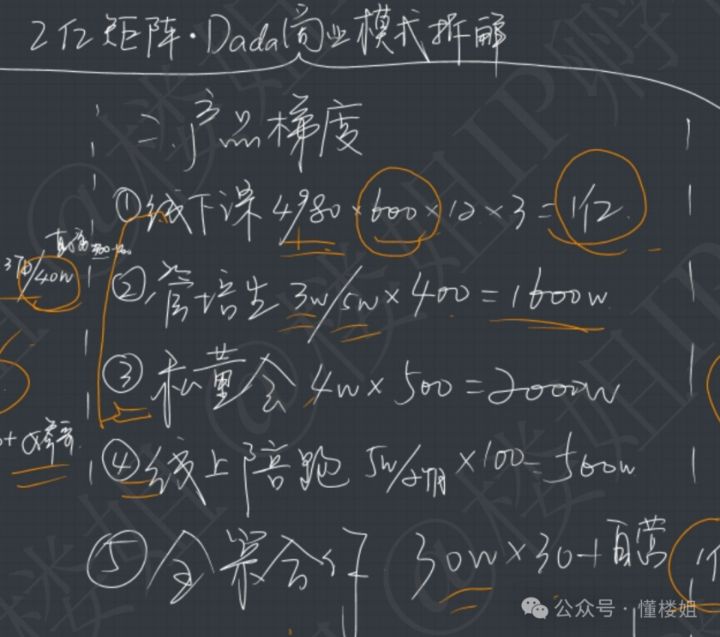 2亿矩阵·Dada商业模式拆解
二.产品梯度
①线下课 4980×600×12×3=1亿
②管培生 3w/5w×400=1600w
/40w
③私董会 4w×500=2000w
④线上陪跑 5w/2个月×100=500w
⑤全案合作 30w×30+自营
@楼姐IP孵
公众号·懂楼姐